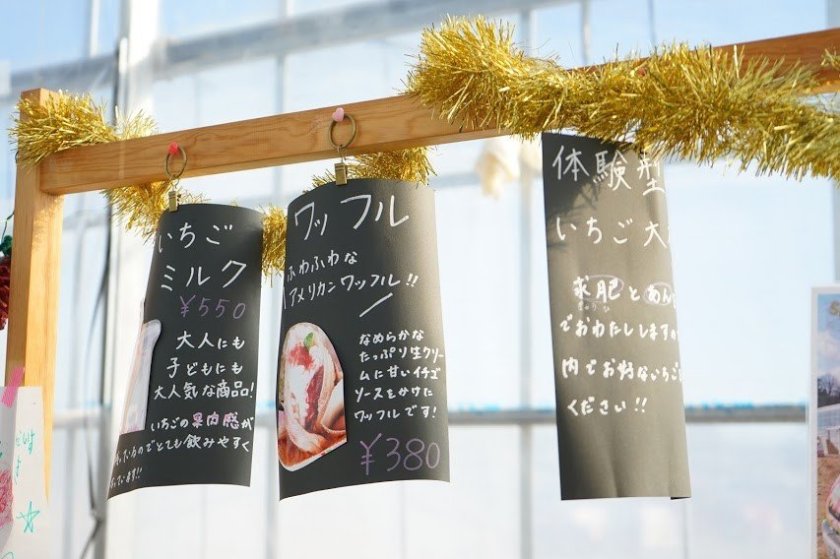 いちご
ミルク
¥550
大人にも
子どもにも
大人気な商品!
いちごの果肉感が
いるのでとても飲みやすく
っています!!
ワッフル
ふわふわな
アメリカンワッフル!!
なめらかな
たっぷり生クリー
ムに甘いイチゴ
ソースをかけた
ワッフルです!
¥380
体験型
いちご大
求肥とあん
ぎゅうひ
でおわたしします
内でお好ないちご
ください!!